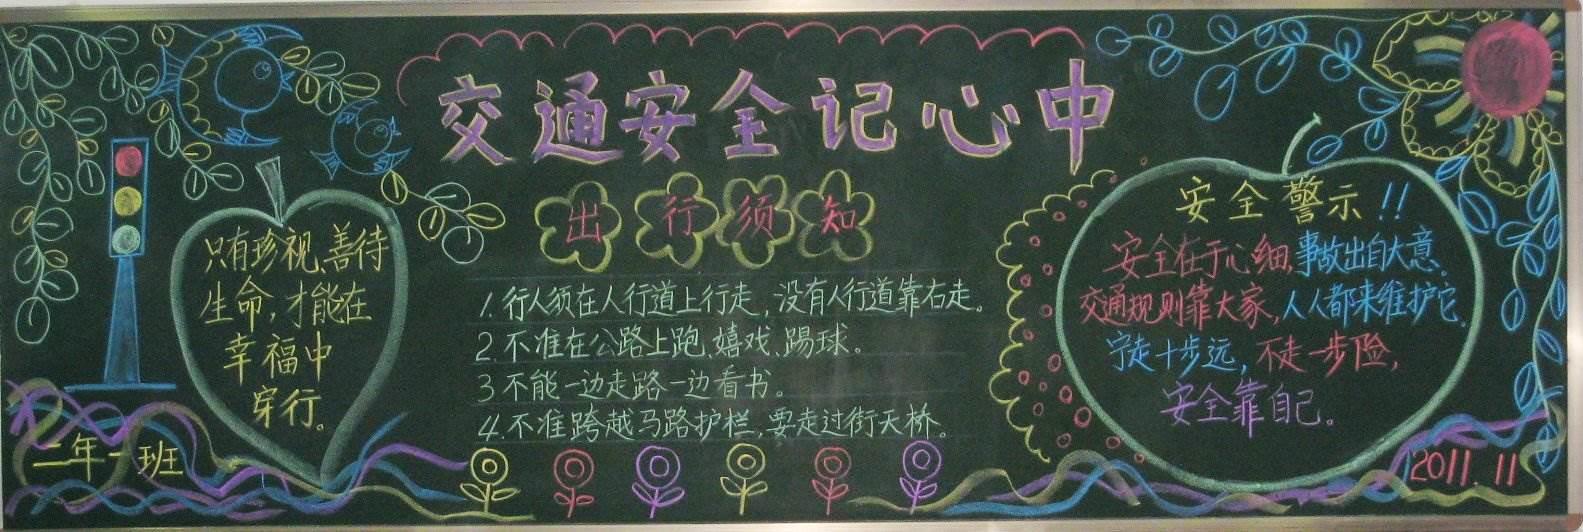 交通安全记心中
只有珍视、善待
生命,才能在
幸福中
穿行。
二年一班
出行须知
1.行人须在人行道上行走,没有人行道靠右走。
2.不准在公路上跑、嬉戏、踢球。
3不能一边走路一边看书。
4.不准跨越马路护栏,要走过街天桥。
安全警示!!
安全在于心细,事故出自大意。
交通规则靠大家,人人都来维护它。
宁走十步远,不走一步险,
安全靠自己。
2011.11